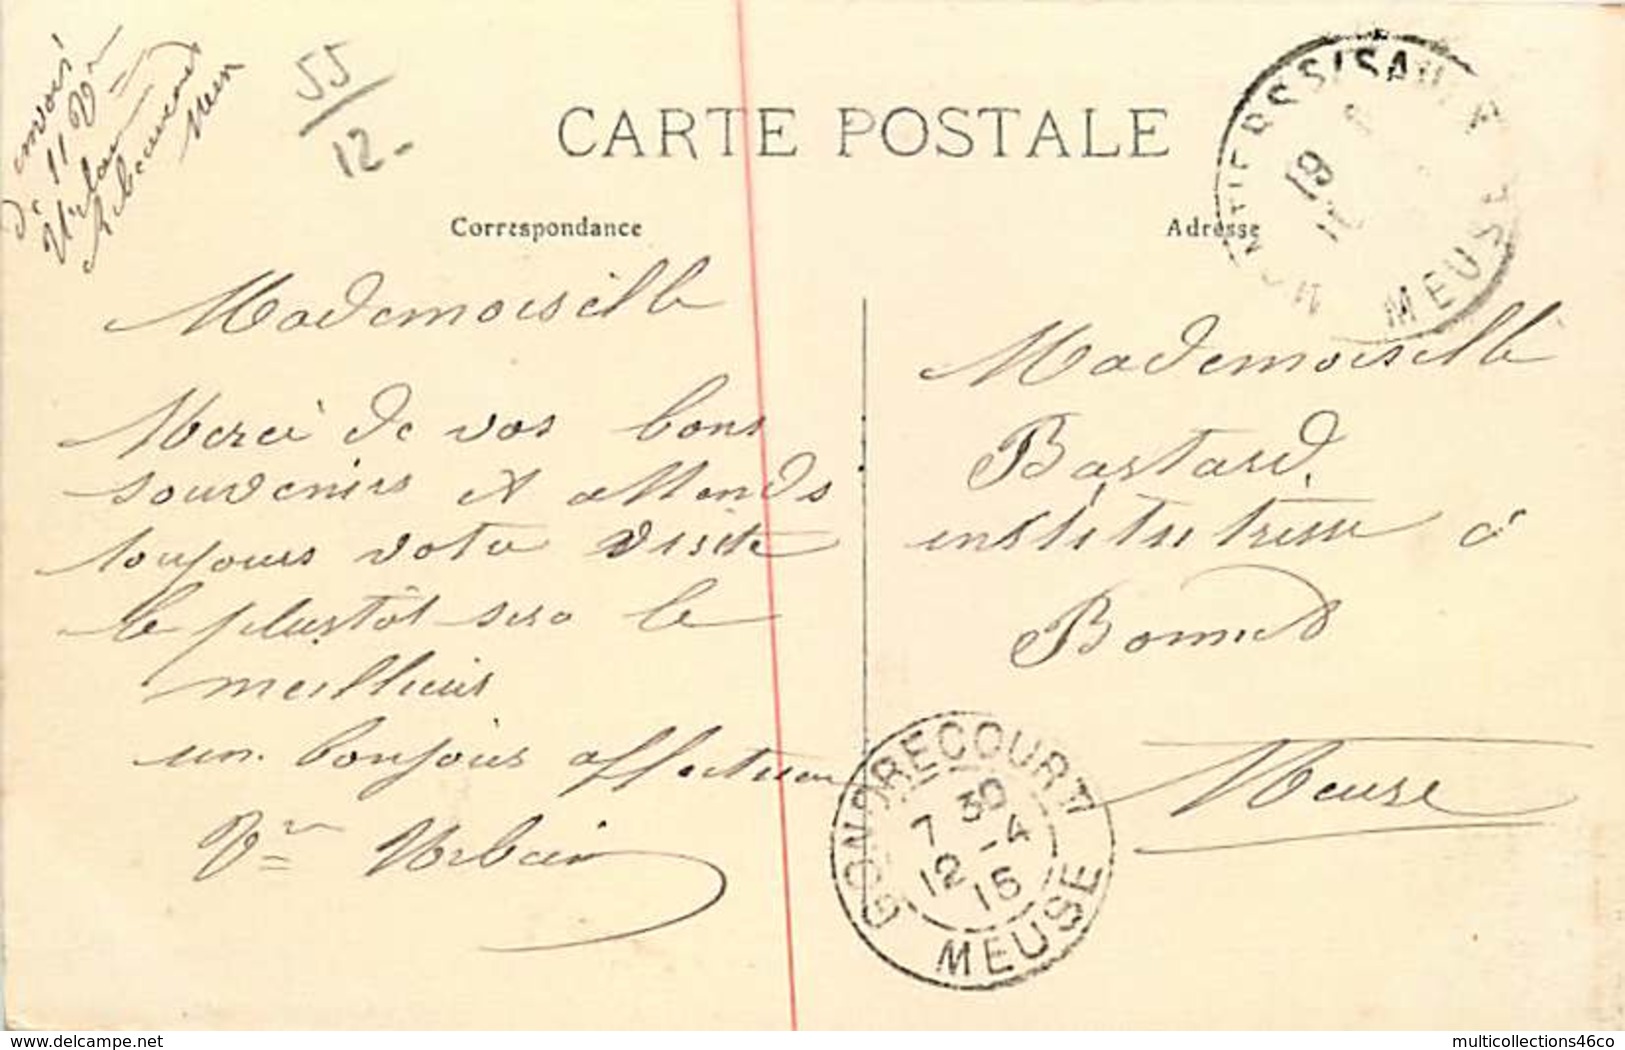 envoi
55
12
CARTE POSTALE
Correspondance
Adresse
MONTIERS S/SAULX
MEUSE
Mademoiselle
Merci de vos bons
souvenirs et attends
toujours votre visite
le plustôt sera le
meilleurs
un bonjour affectueu
Vve Urbain
Mademoiselle
Bastard,
institutrisse à
Bonnet
Meuse
GONDRECOURT
7 30
12 -4
15
MEUSE
delcampe.net
multicollections46co